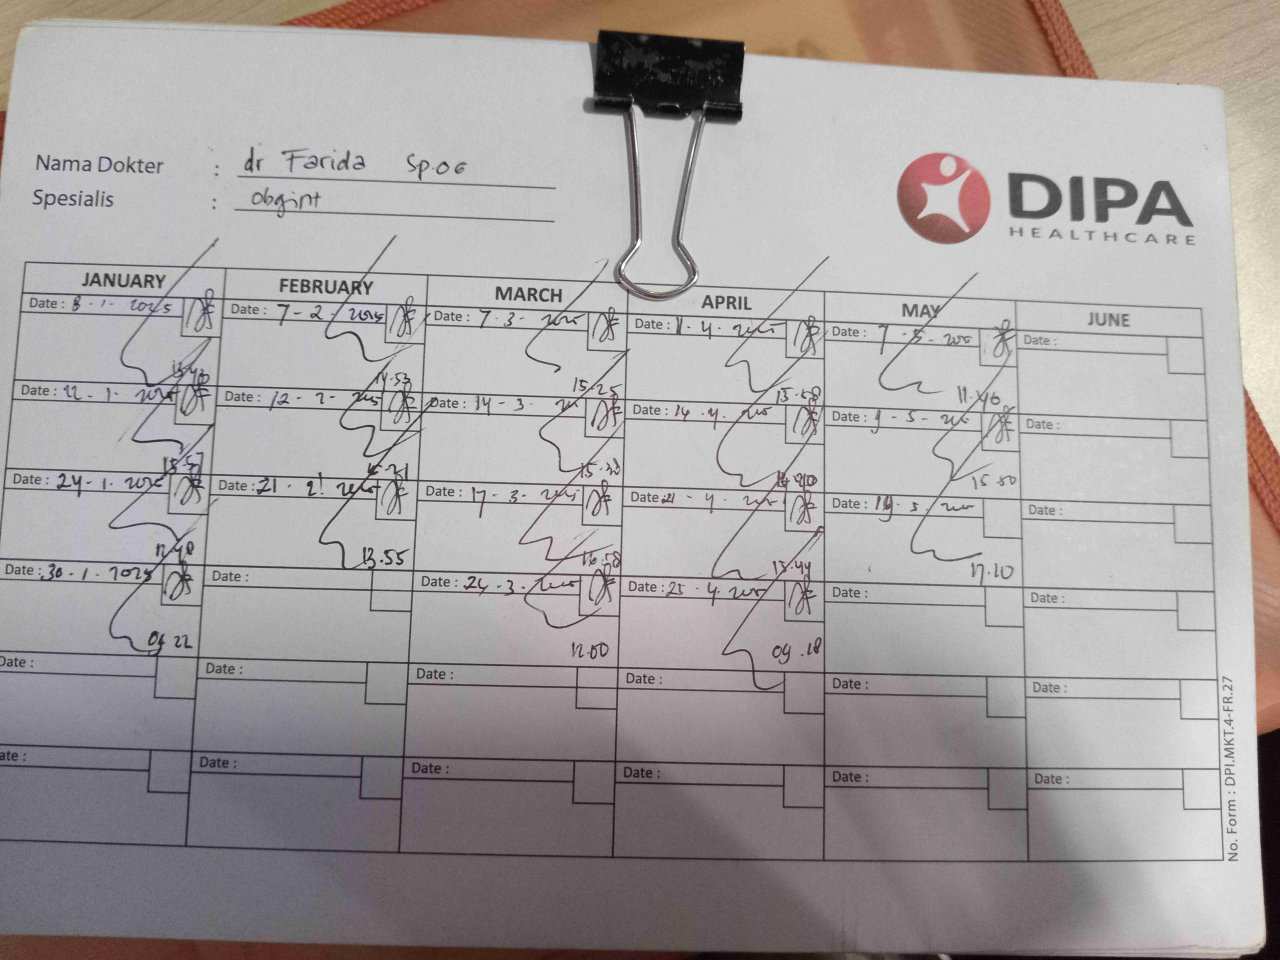 Nama Dokter : dr Farida Sp.OG
Spesialis : obgint
DIPA
HEALTHCARE
JANUARY FEBRUARY MARCH APRIL MAY JUNE
Date : 8-1-2025 Date : 7-2-2025 Date : 7-3- Date : 11-4- Date : 7-5- Date :
14.53 15.25 13.58 11.46
Date : 22-1-2025 Date : 12-2- Date : 14-3- Date : 14-4- Date : 9-5- Date :
15.57 15.50
Date : 24-1-2025 Date : 21-2- Date : 17-3- Date : 21-4- Date : Date :
13.55 16.58 13.44 17.20
Date : 30-1-2025 Date : Date : 24-3- Date : 25-4- Date : Date :
09 22 12.00 09.18
Date : Date : Date : Date : Date : Date :
Date : Date : Date : Date : Date : Date :
No. Form : DPI.MKT.4-FR.27